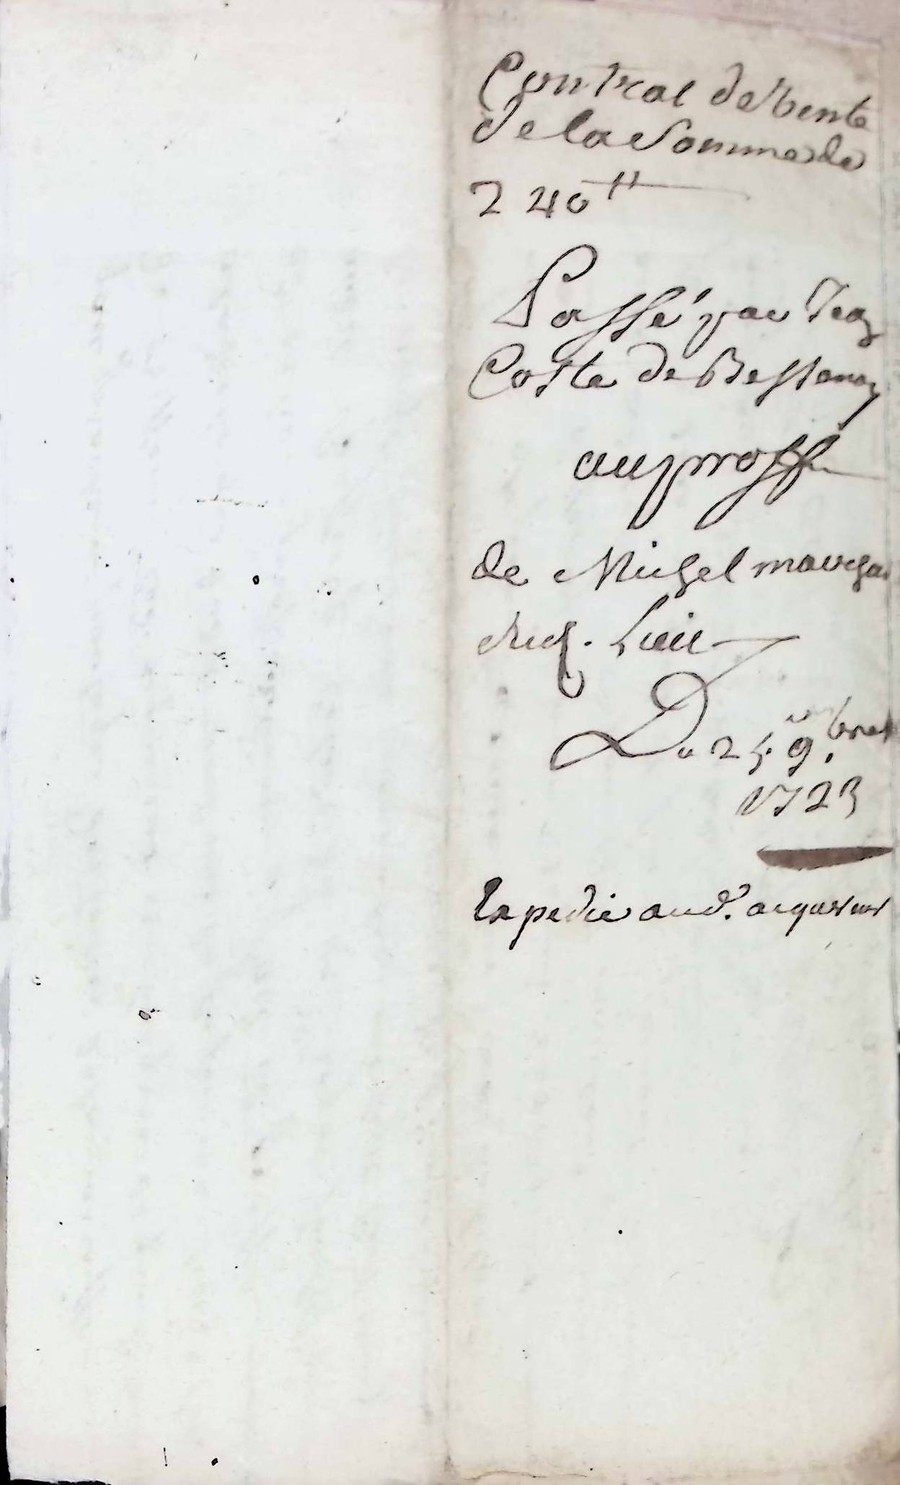 Contrat de Vente
de la Somme de
240 ᵗᵗ
Passé par Jean
Coste de Bessanay
au proffit
de Michel
Du 25. 9.bre
1723
Expedié aud.